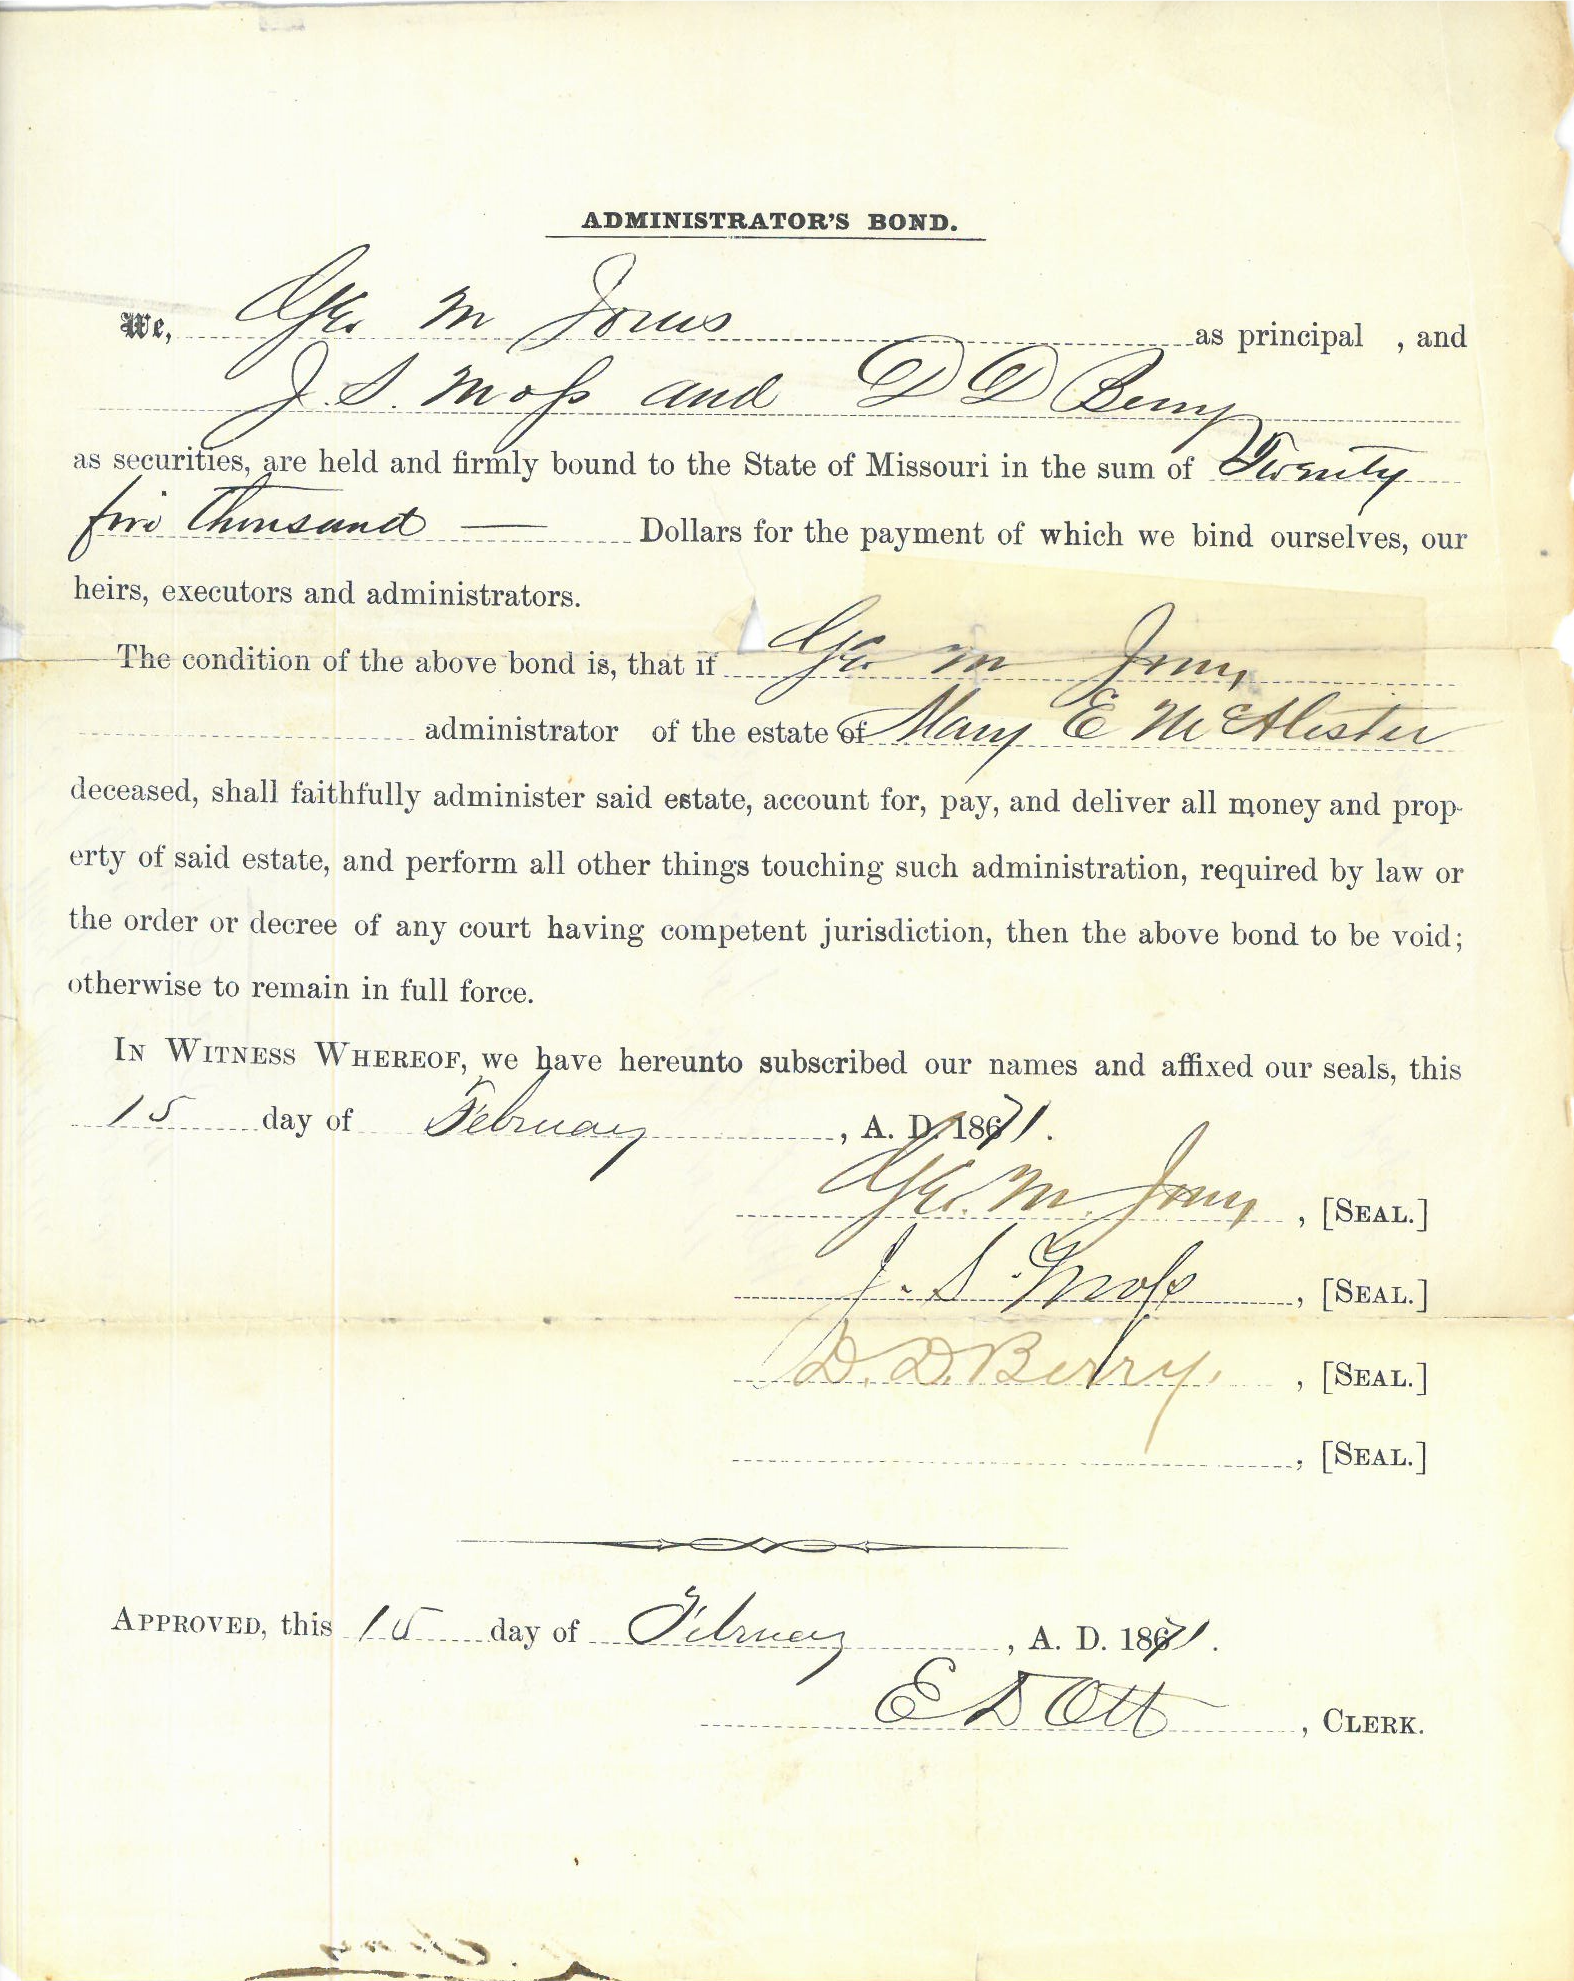 ADMINISTRATOR'S BOND.
We, Geo. M Jones as principal , and
J. S. Moss and D D Berry
as securities, are held and firmly bound to the State of Missouri in the sum of Twenty
five thousand — Dollars for the payment of which we bind ourselves, our
heirs, executors and administrators.
The condition of the above bond is, that if Geo. M Jones
administrator of the estate of Mary E McAlister
deceased, shall faithfully administer said estate, account for, pay, and deliver all money and prop-
erty of said estate, and perform all other things touching such administration, required by law or
the order or decree of any court having competent jurisdiction, then the above bond to be void;
otherwise to remain in full force.
IN WITNESS WHEREOF, we have hereunto subscribed our names and affixed our seals, this
15 day of February , A. D. 1871.
Geo. M. Jones , [SEAL.]
J. S. Moss , [SEAL.]
D. D. Berry. , [SEAL.]
, [SEAL.]
APPROVED, this 15 day of February , A. D. 1871.
E D Ott , CLERK.